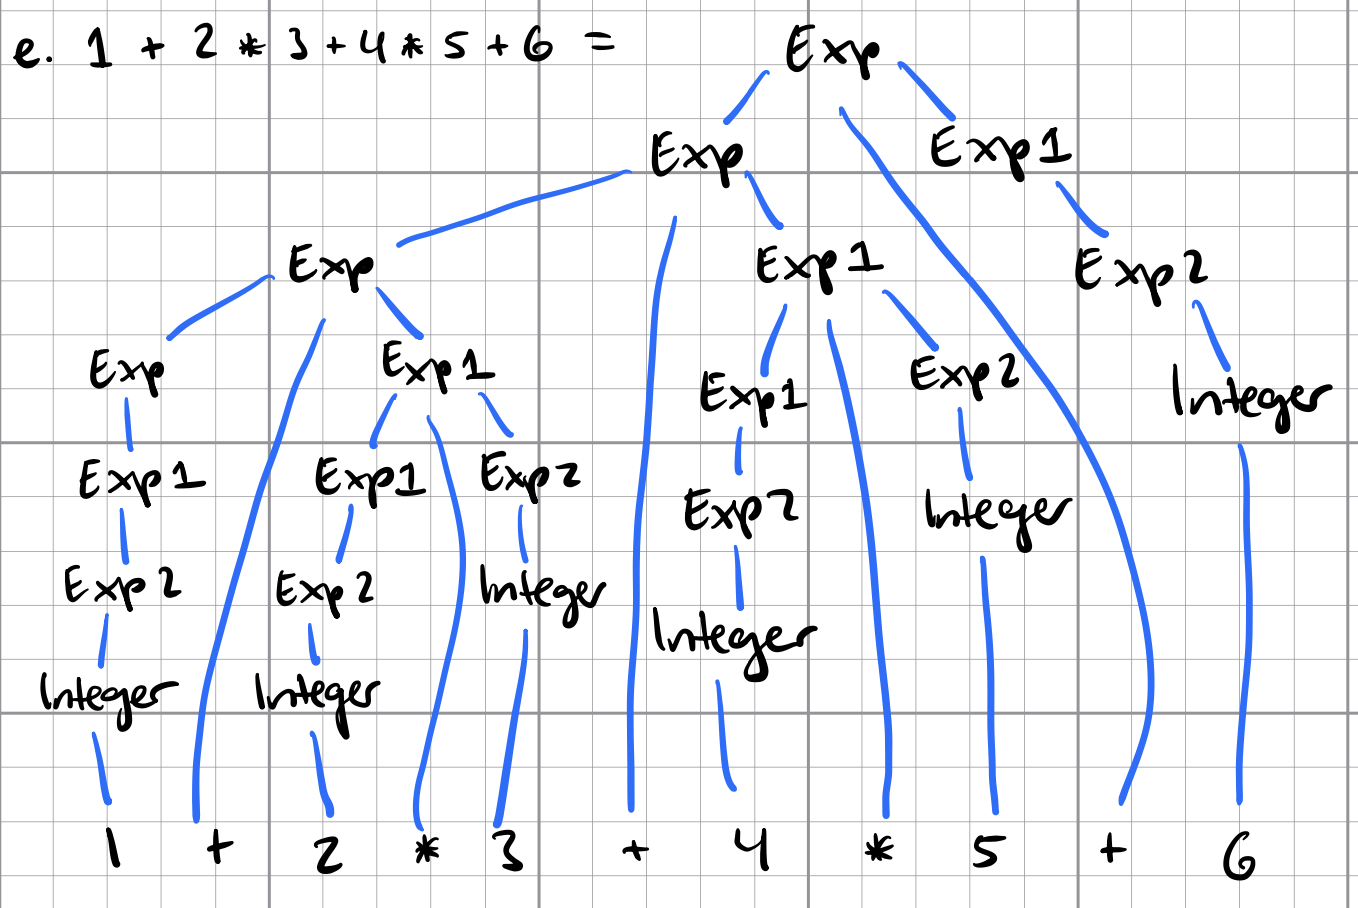 e. 1 + 2 * 3 + 4 * 5 + 6 =
Exp
Exp Exp1
Exp Exp1 Exp2
Exp Exp1 Exp1 Exp2 Integer
Exp1 Exp1 Exp2 Exp2 Integer
Exp2 Exp2 Integer Integer
Integer Integer
1 + 2 * 3 + 4 * 5 + 6